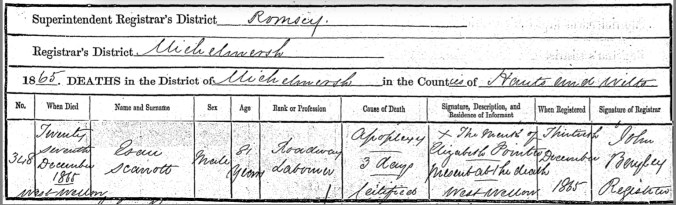 Superintendent Registrar's District Romsey.
Registrar's District Michelmersh
1865. DEATHS in the District of Michelmersh in the Counties of Hants and Wilts
No. When Died Name and Surname Sex Age Rank or Profession Cause of Death Signature, Description, and Residence of Informant When Registered Signature of Registrar
348 Twenty seventh December 1865 West Wellow
Esau Scarrott
Male
81 Years
Roadway Labourer
Apoplexy 3 days Certified
X The Mark of Elizabeth Pointer present at the death West Wellow
Thirtieth December 1865
John Registrar